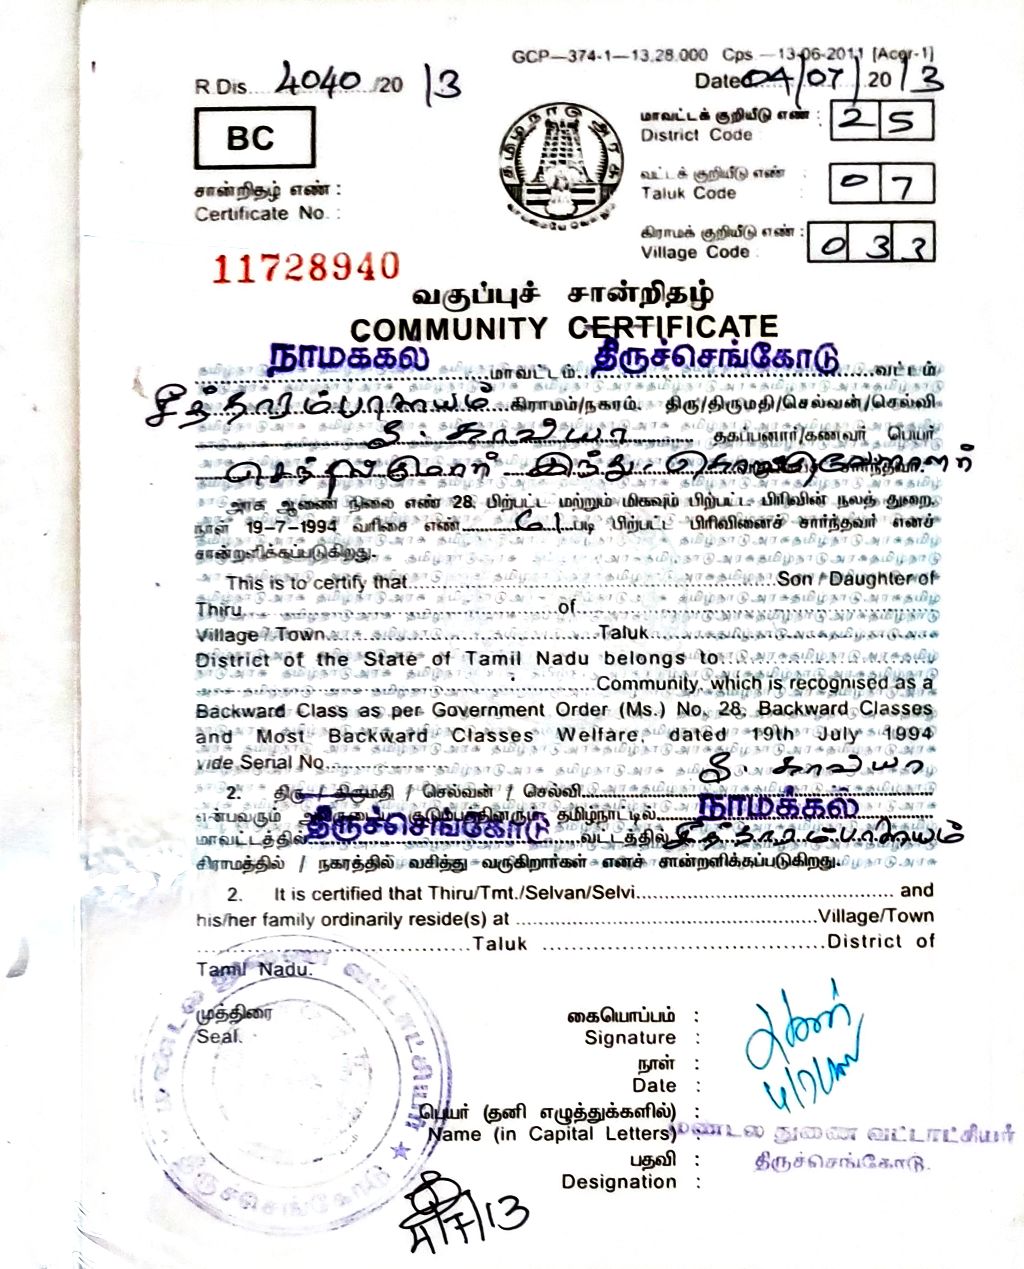 GCP—374-1—13.28.000 Cps.—13-06-2011 [Acgr-1]
R.Dis. 4040 /20 13
Dated 04/07/ 20 13
BC
மாவட்டக் குறியீடு எண் : 25
District Code
வட்டக் குறியீடு எண் : 07
Taluk Code :
கிராமக் குறியீடு எண் : 033
Village Code :
தமிழ்நாடு அரசு
சான்றிதழ் எண் :
Certificate No. :
11728940
வகுப்புச் சான்றிதழ்
COMMUNITY CERTIFICATE
நாமக்கல் மாவட்டம் திருச்செங்கோடு வட்டம்
கிராமம்/நகரம். திரு/திருமதி/செல்வன்/செல்வி
காவியா தகப்பனார்/கணவர் பெயர்
இந்து
அரசு ஆணை நிலை எண் 28. பிற்பட்ட மற்றும் மிகவும் பிற்பட்ட பிரிவின் நலத் துறை.
நாள் 19-7-1994 வரிசை எண் படி பிற்பட்ட பிரிவினைச் சார்ந்தவர் எனச்
சான்றளிக்கப்படுகிறது.
This is to certify that Son / Daughter of
Thiru of
Village / Town Taluk
District of the State of Tamil Nadu belongs to
Community, which is recognised as a
Backward Class as per Government Order (Ms.) No. 28, Backward Classes
and Most Backward Classes Welfare, dated 19th July 1994
vide Serial No.
காவியா
2. திரு / திருமதி / செல்வன் / செல்வி
என்பவரும் குடும்பத்தினரும் தமிழ்நாட்டில் நாமக்கல்
மாவட்டத்தில் திருச்செங்கோடு வட்டத்தில்
கிராமத்தில் / நகரத்தில் வசித்து வருகிறார்கள் எனச் சான்றளிக்கப்படுகிறது.
2. It is certified that Thiru/Tmt./Selvan/Selvi and
his/her family ordinarily reside(s) at Village/Town
Taluk District of
Tamil Nadu.
முத்திரை
Seal.
கையொப்பம் :
Signature :
நாள் :
Date :
பெயர் (தனி எழுத்துக்களில்) :
Name (in Capital Letters) :
மண்டல துணை வட்டாட்சியர்
பதவி :
திருச்செங்கோடு.
Designation :
மண்டல துணை வட்டாட்சியர்
திருச்செங்கோடு
4/7/13